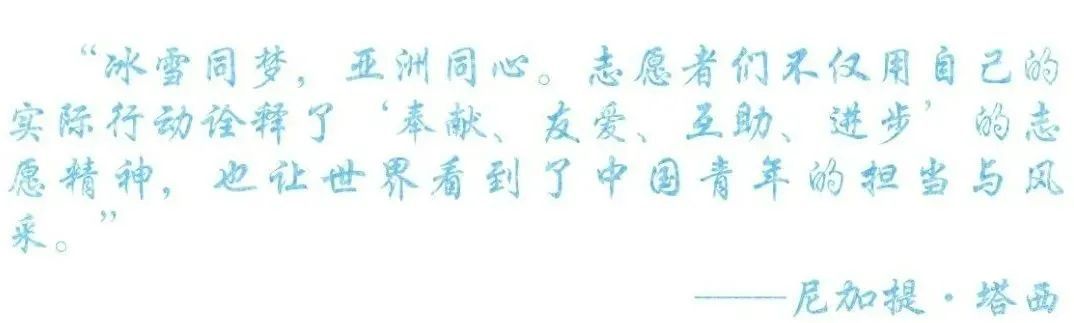 “冰雪同梦，亚洲同心。志愿者们不仅用自己的
实际行动诠释了‘奉献、友爱、互助、进步’的志
愿精神，也让世界看到了中国青年的担当与风
采。”
——尼加提·塔西